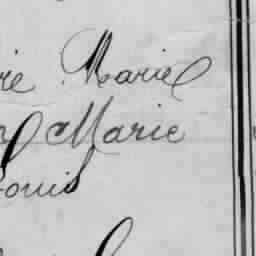 re Marie
Marie
Louis